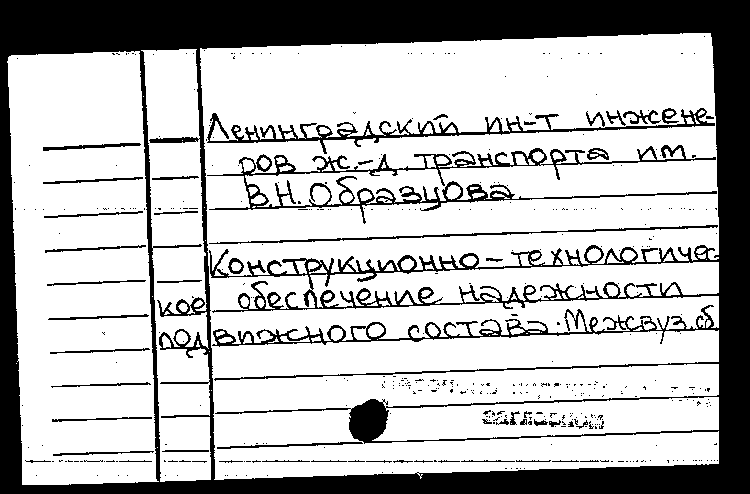 Ленинградский ин-т инжене-
ров ж.-д. транспорта им.
В.Н. Образцова.
Конструкционно-технологичес-
кое обеспечение надежности
подвижного состава. Межвуз. сб.
заглавием